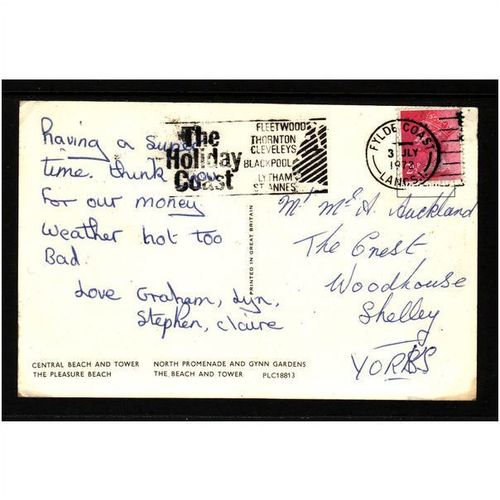 having a super
time. thank you
for our money
Weather not too
Bad.
Love Graham, Lyn,
Stephen, Claire
The
Holiday
Coast
FLEETWOOD
THORNTON
CLEVELEYS
BLACKPOOL
LYTHAM
ST. ANNES
FYLDE COAST
3 JLY
LANCS.
PRINTED IN GREAT BRITAIN
Mr Mrs A. Auckland
The Crest
Woodhouse
Shelley
YORKS
CENTRAL BEACH AND TOWER
THE PLEASURE BEACH
NORTH PROMENADE AND GYNN GARDENS
THE BEACH AND TOWER
PLC18813